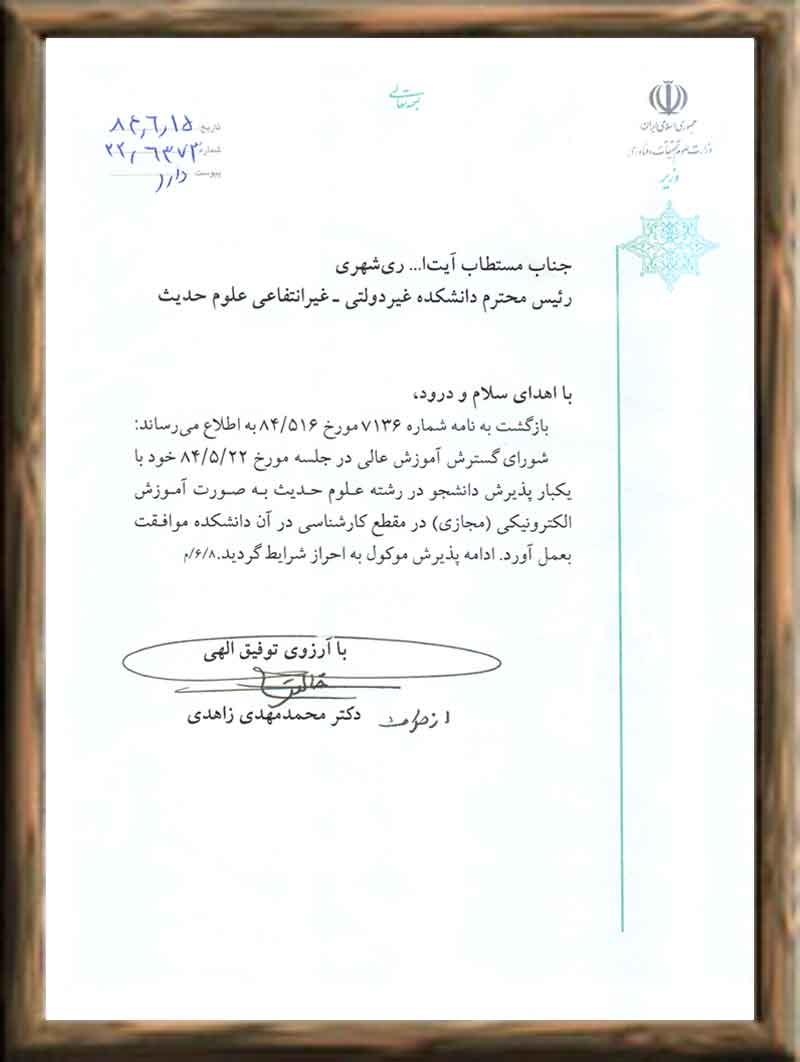 بسمه تعالی
جمهوری اسلامی ایران
وزارت علوم تحقیقات و فناوری
وزیر
تاریخ: ۸۴٫۶٫۱۵
شماره: ۲۲٫۶۳۷۲
پیوست: دارد
جناب مستطاب آیت‌ا... ری‌شهری
رئیس محترم دانشکده غیردولتی ـ غیرانتفاعی علوم حدیث
با اهدای سلام و درود،
بازگشت به نامه شماره ۷۱۳۶ مورخ ۸۴/۵۱۶ به اطلاع می‌رساند:
شورای گسترش آموزش عالی در جلسه مورخ ۸۴/۵/۲۲ خود با
یکبار پذیرش دانشجو در رشته علوم حدیث به صورت آموزش
الکترونیکی (مجازی) در مقطع کارشناسی در آن دانشکده موافقت
بعمل آورد. ادامه پذیرش موکول به احراز شرایط گردید.۶/۸/م
با آرزوی توفیق الهی
از طرف دکتر محمدمهدی زاهدی